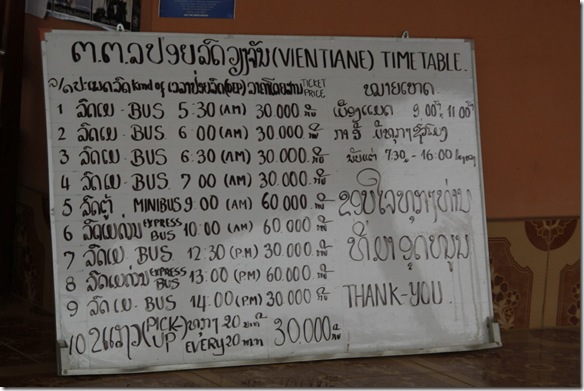 ຕ.ຕ.ລ ປ່ອຍລົດວຽງຈັນ (VIENTIANE) TIMETABLE.
ລ/ດ ປະເພດລົດ kind of ເວລາປ່ອຍລົດ(DEP) ລາຄາໂດຍສານ TICKET PRICE
1 ລົດເມ - BUS 5:30 (AM) 30.000 ກີບ
2 ລົດເມ - BUS 6:00 (AM) 30.000 ກີບ
3 ລົດເມ - BUS 6:30 (AM) 30.000 ກີບ
4 ລົດເມ - BUS 7:00 (AM) 30.000 ກີບ
5 ລົດຕູ້ MINIBUS 9:00 (AM) 60.000 ກີບ
6 ລົດເມດ່ວນ EXPRESS BUS 10:00 (AM) 60.000 ກີບ
7 ລົດເມ - BUS 12:30 (PM) 30.000 ກີບ
8 ລົດເມດ່ວນ EXPRESS BUS 13:00 (PM) 60.000 ກີບ
9 ລົດເມ - BUS 14:00 (PM) 30.000 ກີບ
10 ສອງແຖວ (PICK-UP) ທຸກໆ 20 ນາທີ EVERY 20 ນາທີ 30.000 ກີບ
ໝາຍເຫດ
9:00 11:00
7:30 - 16:00
ຂອບໃຈທຸກໆທ່ານ
THANK-YOU.